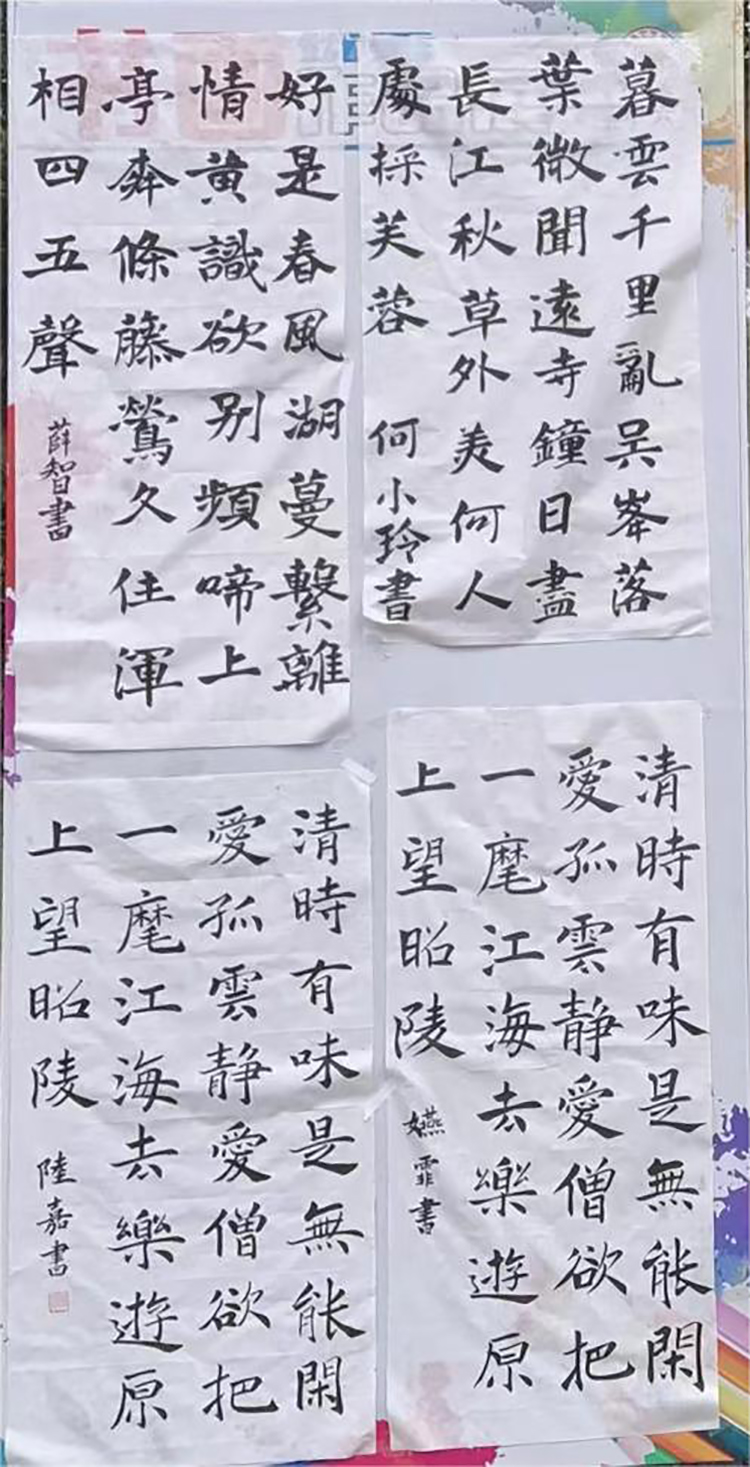 暮雲千里亂吳峯落
葉微聞遠寺鐘日盡
長江秋草外美何人
處採芙蓉
何小玲書
好是春風湖蔓繫離
情黄識欲别頻啼上
亭奔條藤鶯久住渾
相四五聲
薛智書
清時有味是無能閑
愛孤雲靜愛僧欲把
一麾江海去樂遊原
上望昭陵
嬿霏書
清時有味是無能閑
愛孤雲靜愛僧欲把
一麾江海去樂遊原
上望昭陵
陸嘉書